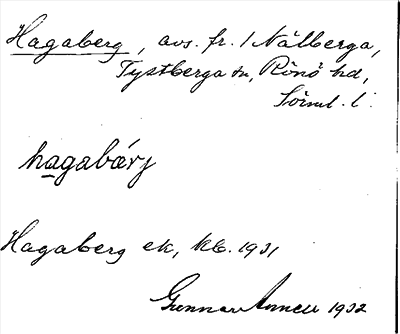 Hagaberg, avs. fr. 1 Nälberga,
Tystberga sn, Rönö hd,
Söml. l.
hagabærj
Hagaberg ek, kb. 1931
Gunnar Annell 1932